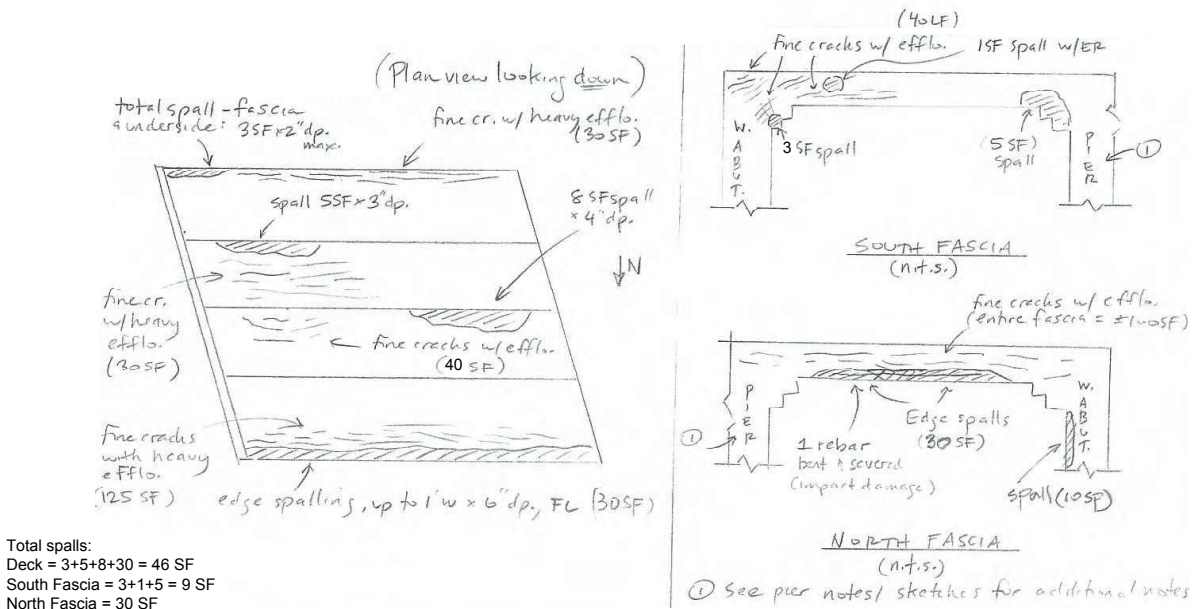 (Plan view looking down)
total spall - fascia
& underside: 3SF x 2" dp.
max.
fine cr. w/ heavy efflo.
(30 SF)
spall 5SF x 3" dp.
8 SF spall
x 4" dp.
N
fine cr.
w/ heavy
efflo.
(30 SF)
fine cracks w/ efflo.
(40 SF)
fine cracks
with heavy
efflo.
(125 SF)
edge spalling, up to 1' w x 6" dp., FL (30SF)
Total spalls:
Deck = 3+5+8+30 = 46 SF
South Fascia = 3+1+5 = 9 SF
North Fascia = 30 SF
(40LF)
fine cracks w/ efflo.
1SF spall w/ER
W. ABUT.
3 SF spall
(5 SF)
spall
PIER
1
SOUTH FASCIA
(n.t.s.)
fine cracks w/ efflo.
(entire fascia = ±100SF)
PIER
W. ABUT.
1
Edge spalls
(30 SF)
1 rebar
bent & severed
(impact damage)
spall (10SF)
NORTH FASCIA
(n.t.s.)
1 See pier notes/ sketches for additional notes